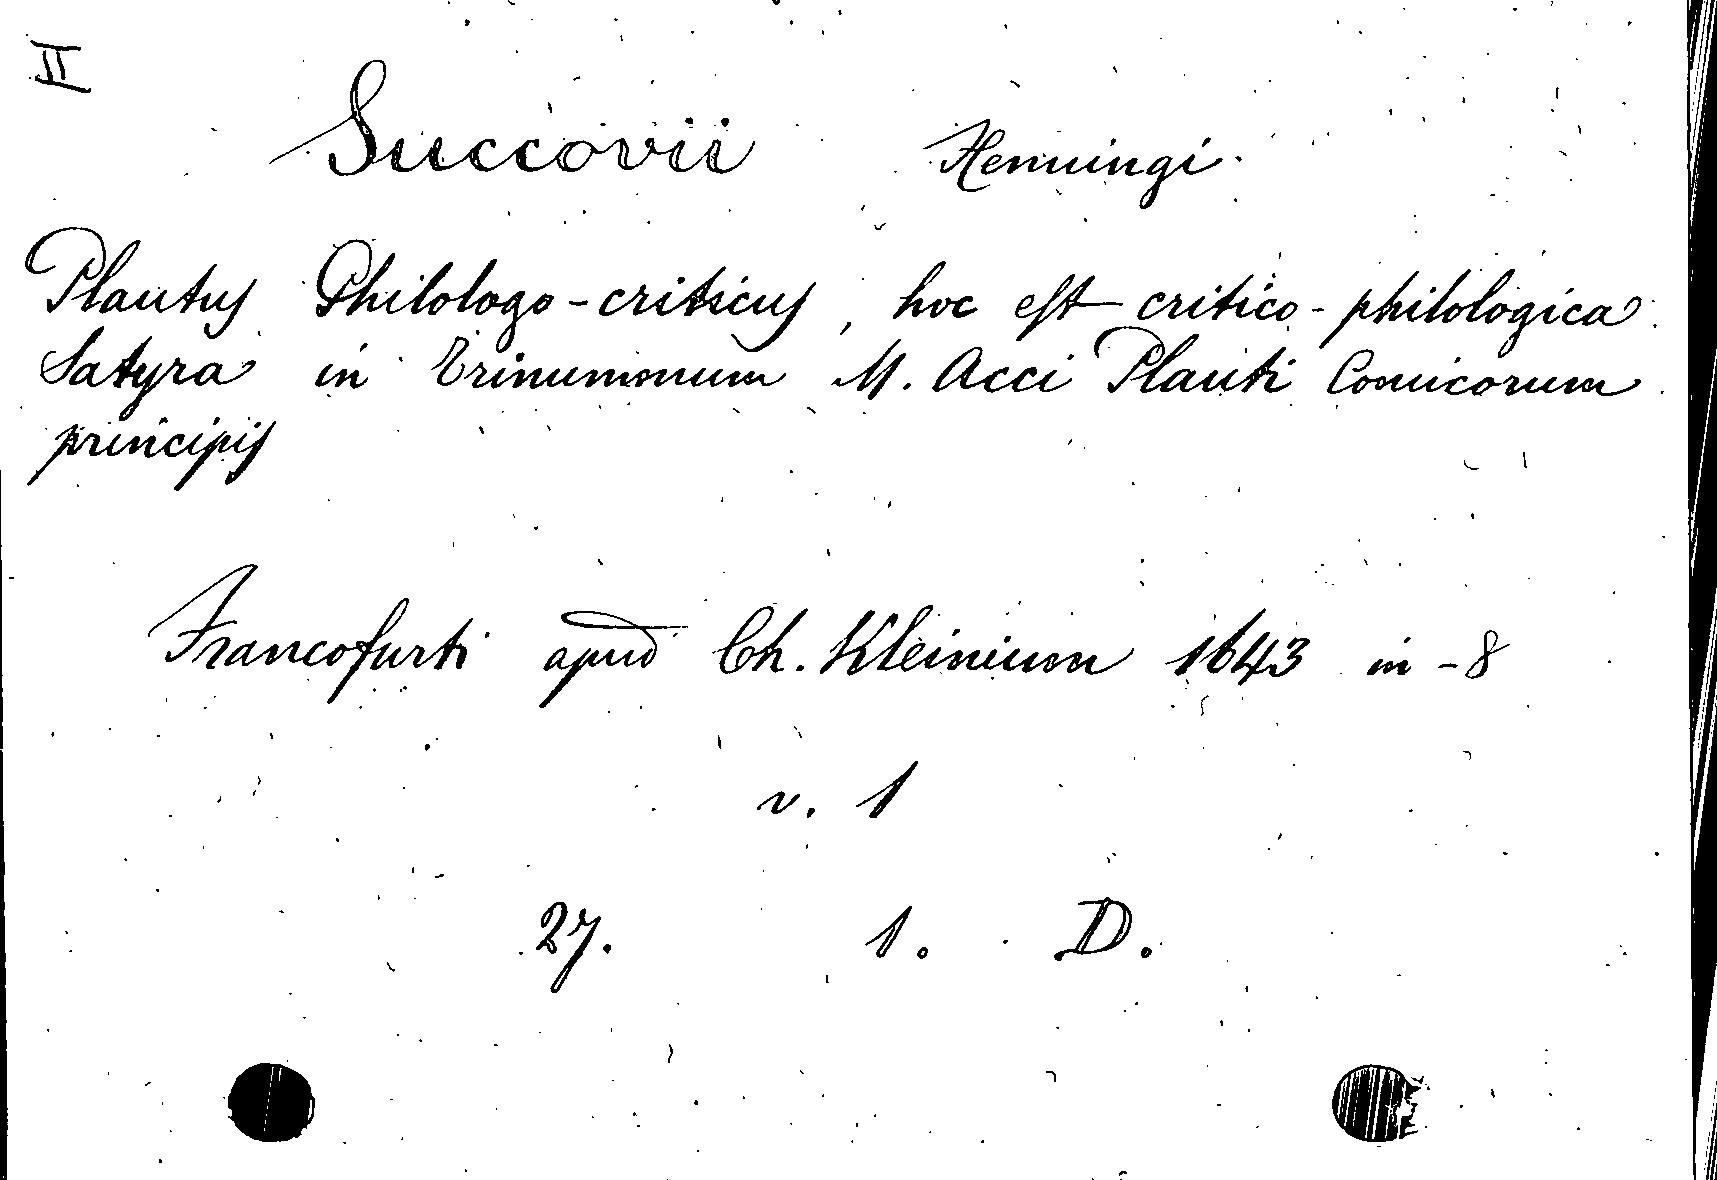 II
Succovii Henningi
Plautus Philologo-criticus, hoc est critico-philologica
Satyra in Trinummum M. Acci Plauti Comicorum
principis
Francofurti apud Ch. Kleinium 1643 in-8
v. 1
27. 1. D.